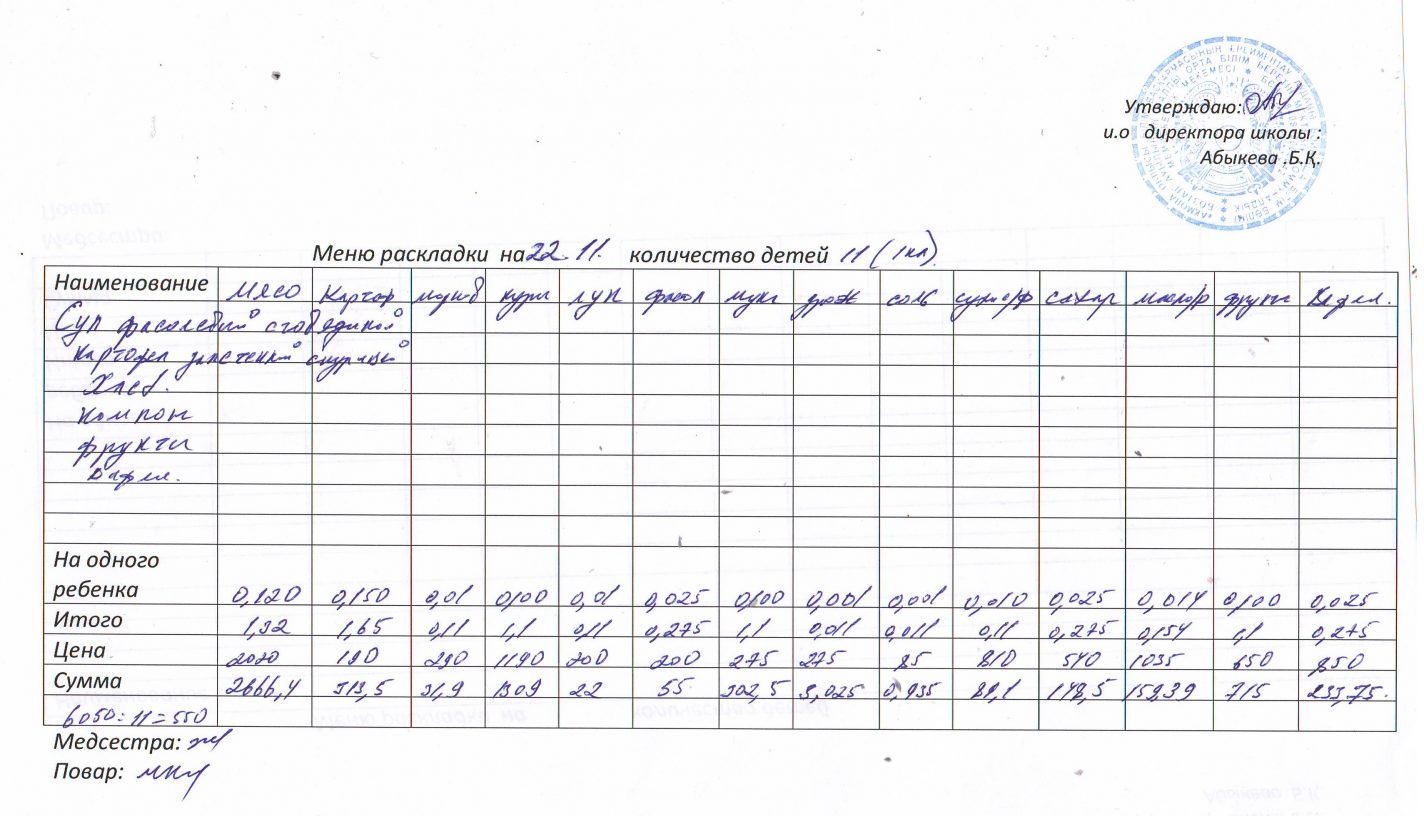 Утверждаю:
и.о директора школы :
Абыкева .Б.Қ.
Меню раскладки на 22.11. количество детей 11 (1кл).
Наименование мясо Картоф лук фасол мука дрож соль сухие/ф сахар масло/р фрукты Вафли.
Суп фасолевый с говядиной
Картофел с курицей
Хлеб.
Компот
фрукты
Вафли.
На одного
ребенка 0,120 0,150 0,01 0,100 0,01 0,025 0,100 0,001 0,001 0,010 0,025 0,014 0,100 0,025
Итого 1,32 1,65 0,11 1,1 0,11 0,275 1,1 0,011 0,011 0,11 0,275 0,154 1,1 0,275
Цена 2020 190 290 1190 200 200 275 275 85 810 540 1035 650 850
Сумма 2666,4 313,5 31,9 1309 22 55 302,5 3,025 0,935 89,1 148,5 159,39 715 233,75.
6050:11=550
Медсестра:
Повар: